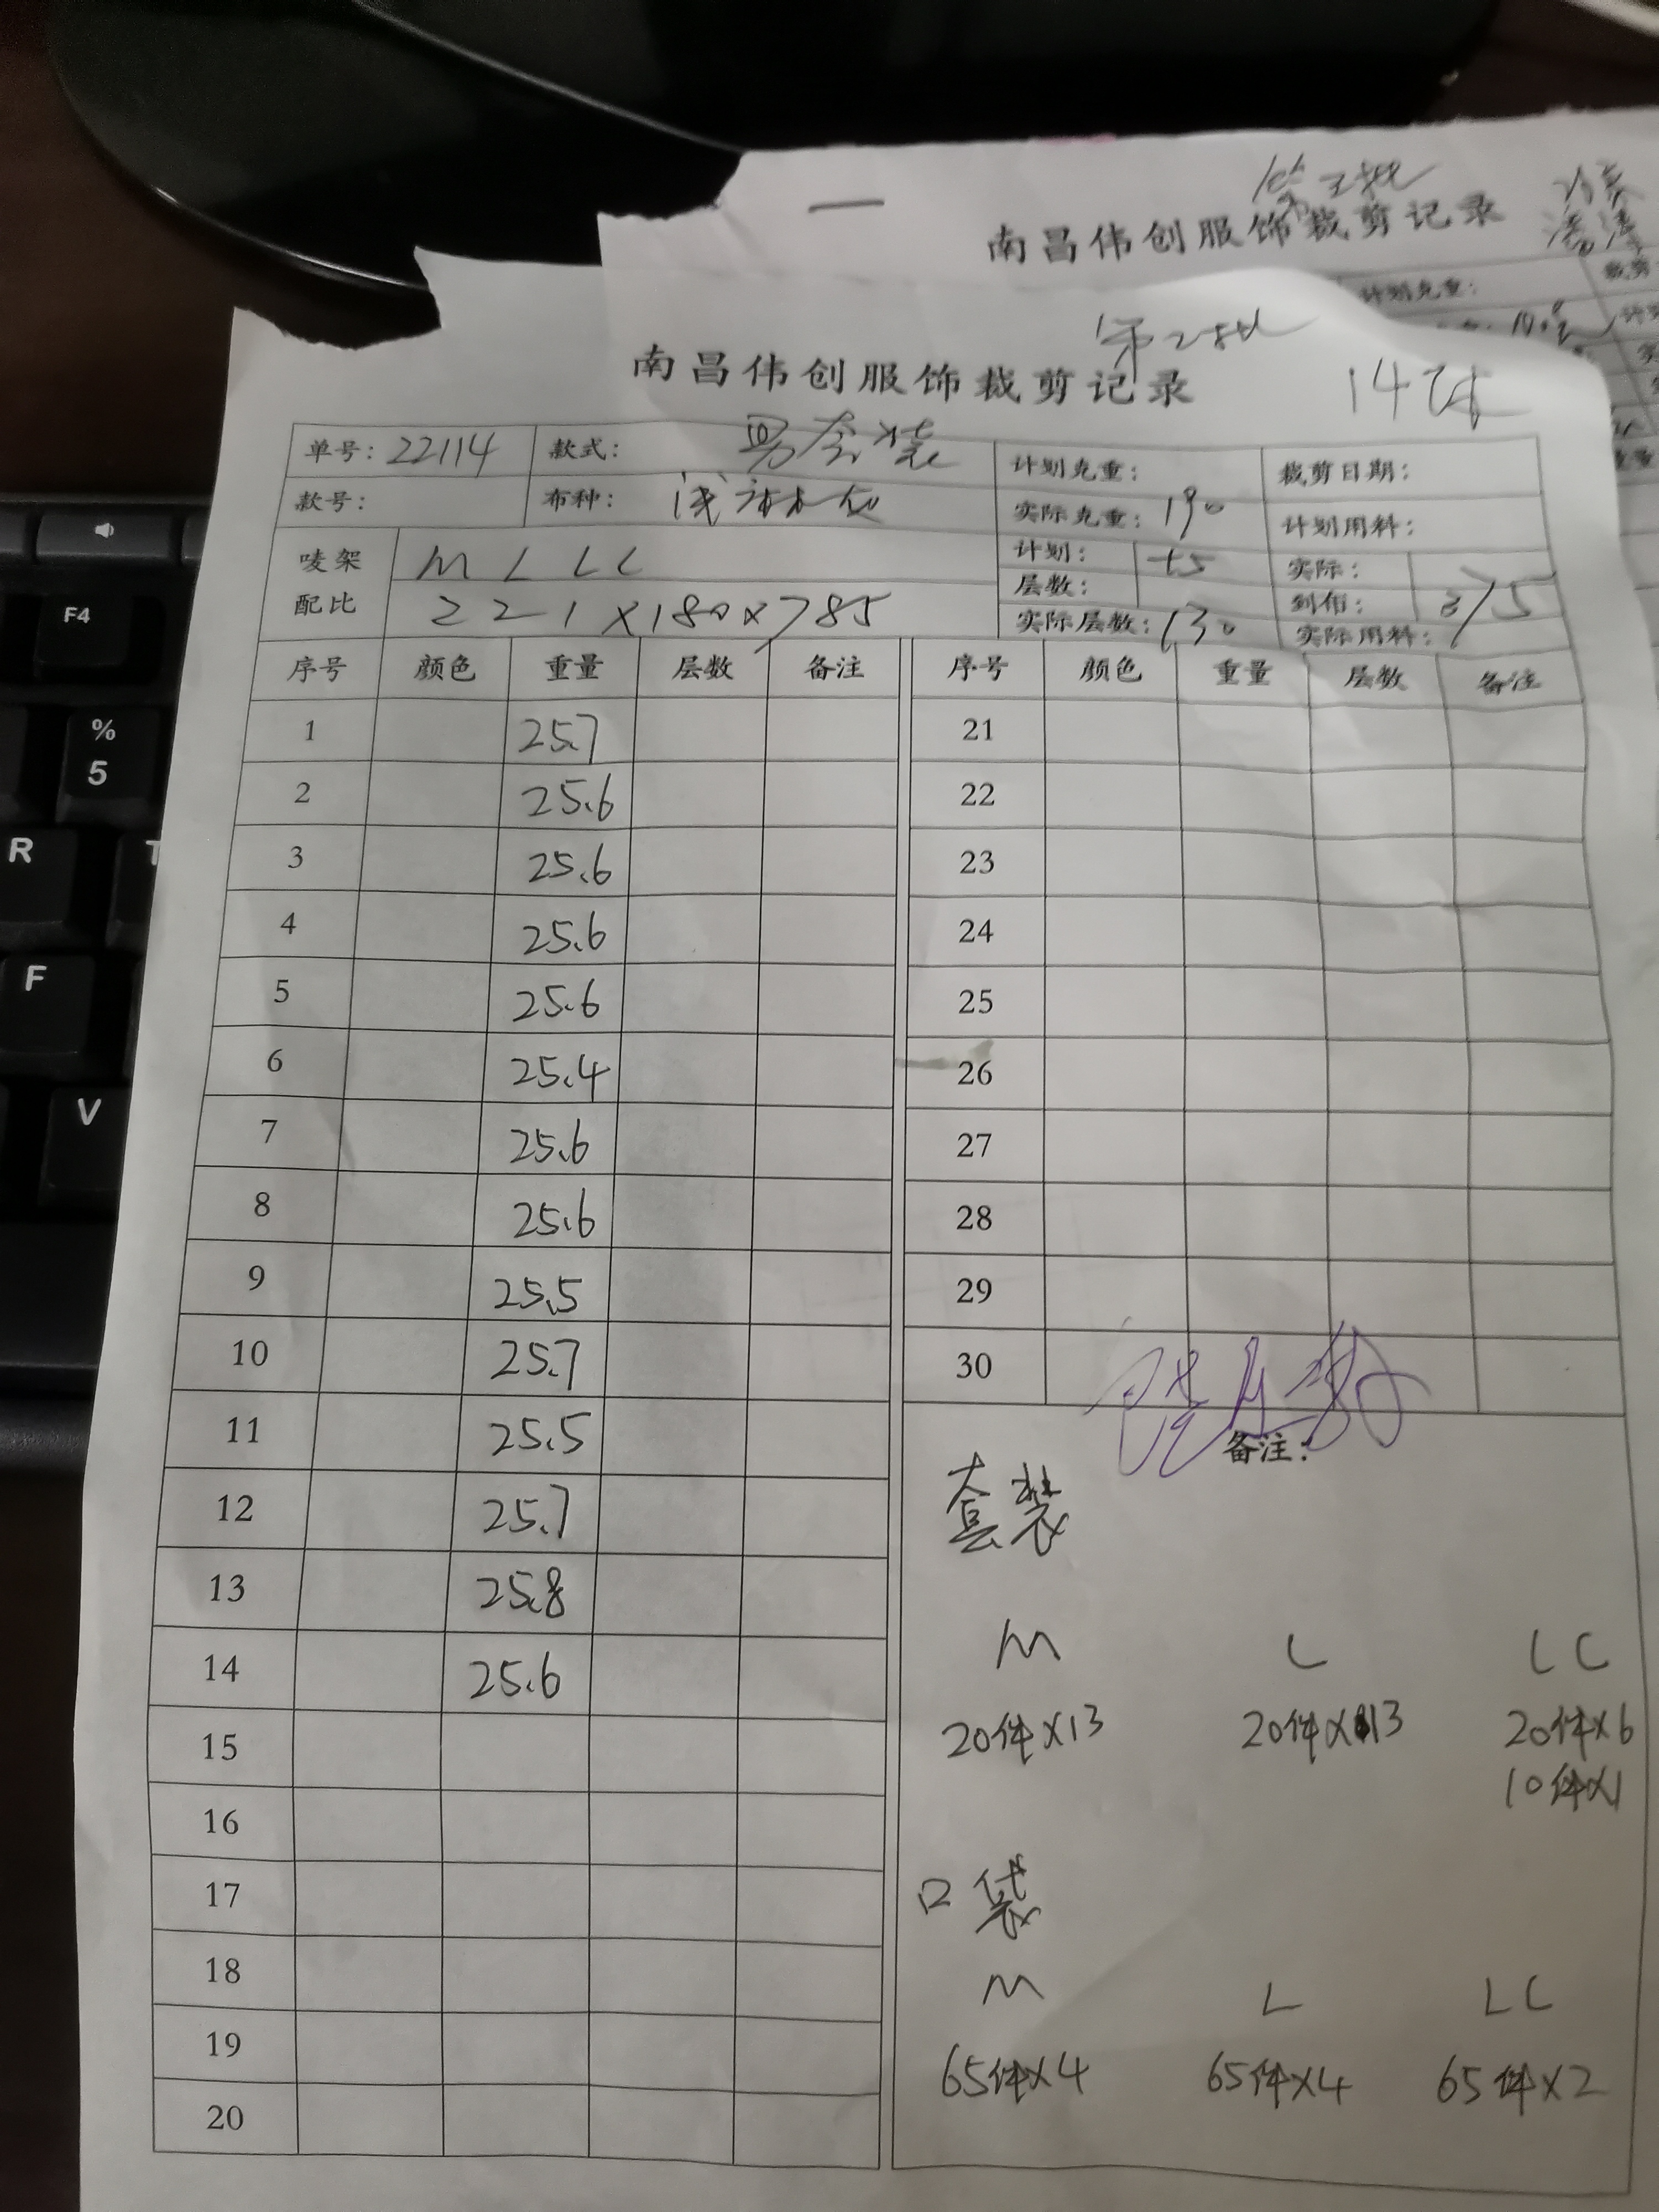 南昌伟创服饰裁剪记录
计划克重：
南昌伟创服饰裁剪记录
第2批
14匹
单号：22114 款式：男套装 计划克重： 裁剪日期：
款号： 布种： 实际克重：190 计划用料：
唛架配比 M L LC
2 2 1 ×180×785
计划层数： 实际到布： 375
实际层数：130 实际用料：
序号 颜色 重量 层数 备注 序号 颜色 重量 层数 备注
1 25.7 21
2 25.6 22
3 25.6 23
4 25.6 24
5 25.6 25
6 25.4 26
7 25.6 27
8 25.6 28
9 25.5 29
10 25.7 30
11 25.5
备注：
12 25.7
套装
13 25.8
14 25.6
M L LC
15
20件×13 20件×13 20件×6
10件×1
16
17
口袋
18
M L LC
19
65件×4 65件×4 65件×2
20
F4
%
5
R
T
F
V